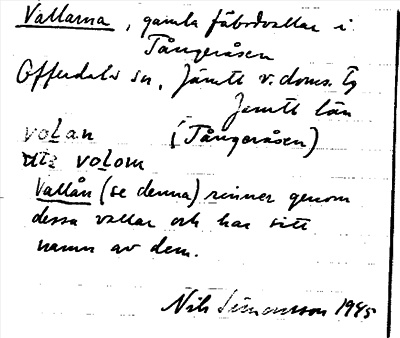 Vallarna, gamla fäbodvallar i
Tångeråsen
Offerdals sn, Jämtl v. doms. tg
Jämtl län
volan (Tångeråsen)
volom
Vallån (se denna) rinner genom
dessa vallar och har sitt
namn av dem.
Nils Simonsson 1945